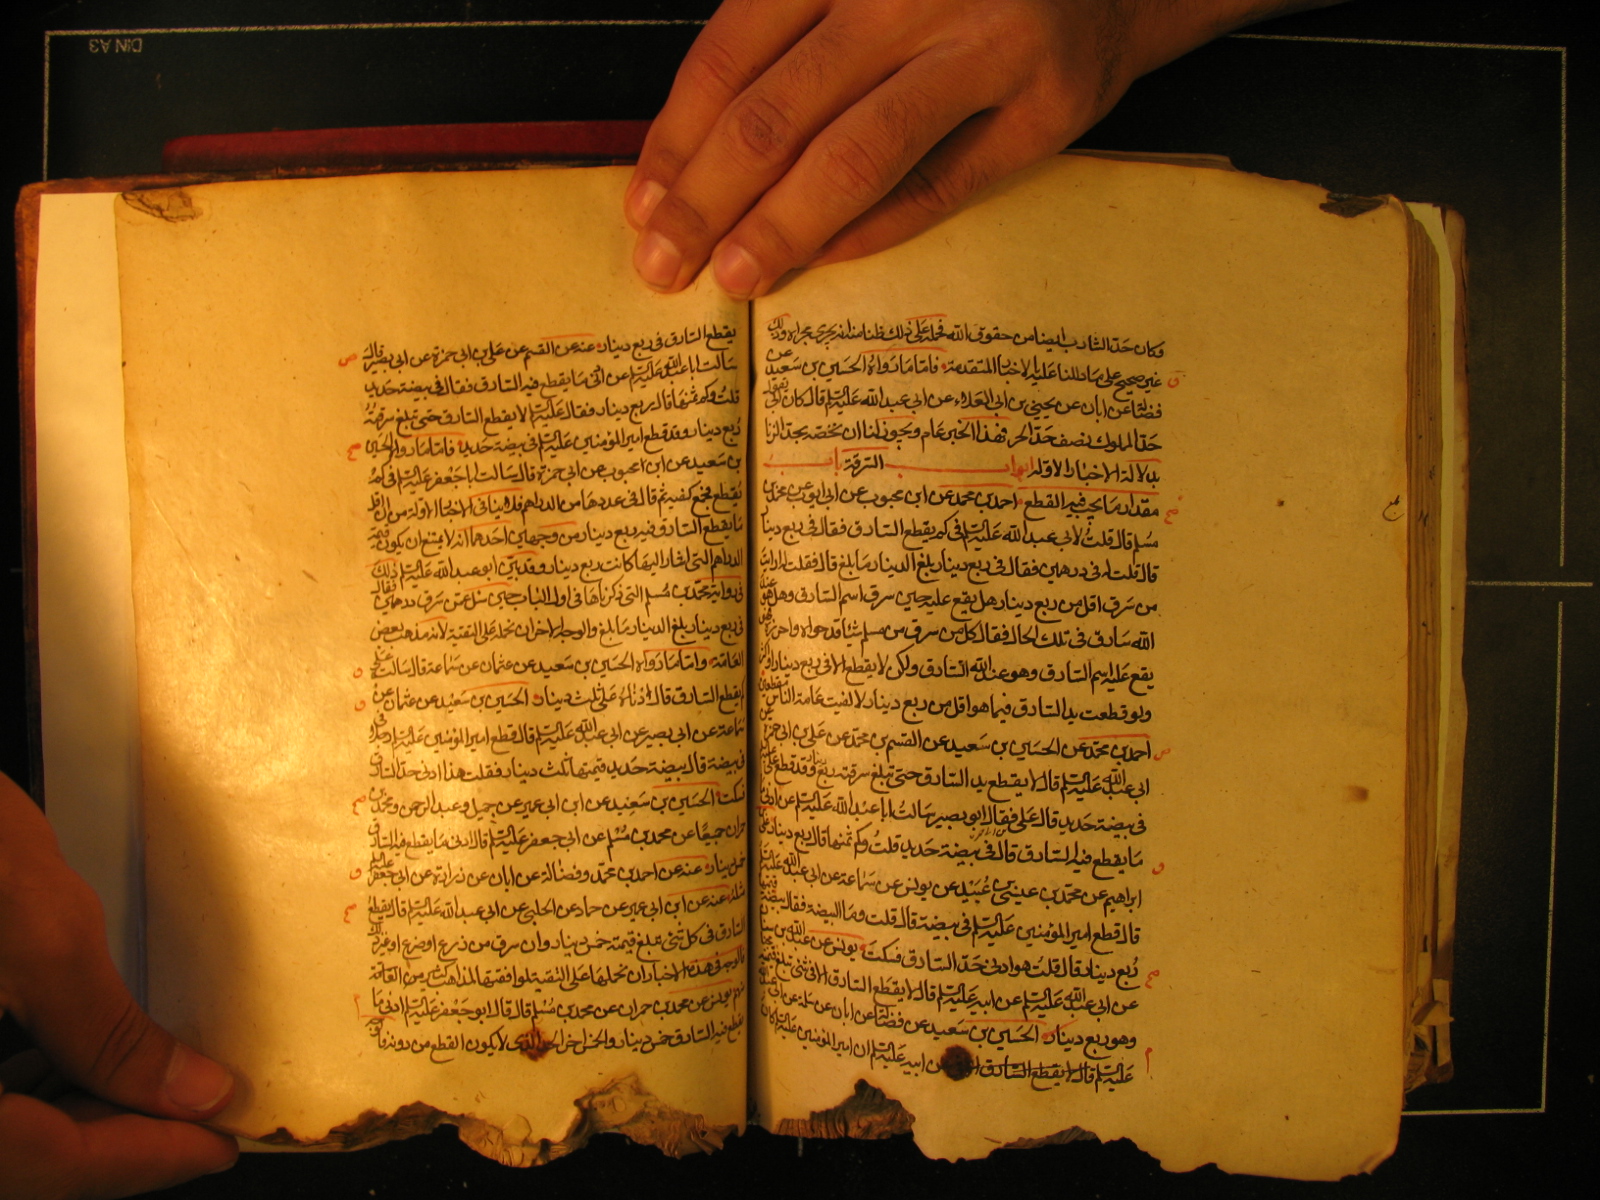 وكان حد الشارب ايضا من حقوق الله فحمله على ذلك ظنا منه انه يجرى مجراه وذلك
غير صحيح على ما دللنا عليه بالاخبار المتقدمة فاما ما رواه الحسين بن سعيد عن
فضالة عن ابان عن يحيى بن ابى العلاء عن ابى عبد الله عليه السلم قال كان ابى يقول
حد المملوك نصف حد الحر فهذا الخبر عام ويجوز لنا ان نخصه بحد الزنا
بدلالة الاخبار الاولة ابواب السرقة باب
مقدار ما يجب فيه القطع احمد بن محمد عن ابن محبوب عن ابى ايوب عن محمد بن
مسلم قال قلت لابى عبد الله عليه السلم فى كم يقطع السارق فقال فى ربع دينار
قال قلت له فى درهمين فقال فى ربع دينار بلغ الدينار ما بلغ قال فقلت له ارايت
من سرق اقل من ربع دينار هل يقع عليه حين سرق اسم السارق وهل هو عند
الله سارق فى تلك الحال فقال كل من سرق من مسلم شيئا قد حواه واحرزه فهو
يقع عليه اسم السارق وهو عند الله السارق ولكن لا يقطع الا فى ربع دينار او اكثر
ولو قطعت يد السارق فيما هو اقل من ربع دينار لالفيت عامة الناس مقطعين
احمد بن محمد عن الحسين بن سعيد عن القسم بن محمد عن على بن ابى حمزة عن
ابى عبد الله عليه السلم قال لا يقطع يد السارق حتى تبلغ سرقته ربع دينار وقد قطع على عليه
فى بيضة حديد قال على فقال ابو بصير سالت ابا عبد الله عليه السلم عن ادنى
ما يقطع فيه السارق قال فى بيضة حديد قلت وكم ثمنها قال ربع دينار على بن
ابراهيم عن محمد بن عيسى بن عبيد عن يونس عن سماعة عن ابى عبد الله عليه السلم
قال قطع امير المؤمنين عليه السلم فى بيضة قال قلت وما البيضة فقال بيضة قيمتها
ربع دينار قال قلت هو ادنى حد السارق فسكت يونس عن عبد الله بن سنان
عن ابى عبد الله عليه السلم عن ابيه عليه السلم قال لا يقطع السارق الا فى شئ تبلغ قيمته مجنا
وهو ربع دينار الحسين بن سعيد عن فضالة عن ابان عن سلمة عن ابى عبد الله
عليه السلم قال لا يقطع السارق عن ابيه عليه السلم ان امير المؤمنين عليه السلم كان
يقطع السارق فى ربع دينار عنه عن القسم عن على بن ابى حمزة عن ابى بصير قال
سالت ابا عبد الله عليه السلم عن ادنى ما يقطع فيه السارق فقال فى بيضة حديد
قلت وكم ثمنها قال ربع دينار فقال عليه السلم لا يقطع السارق حتى تبلغ سرقته
ربع دينار وقد قطع امير المؤمنين عليه السلم فى بيضة حديد فاما ما رواه الحسين
بن سعيد عن ابن محبوب عن ابى حمزة قال سالت ابا جعفر عليه السلم فى كم
يقطع فجمع كفيه ثم قال فى عددها من الدراهم فلا ينافى الاخبار الاولة من ان اقل
ما يقطع السارق فيه ربع دينار من وجهين احدهما انه لا يمتنع ان يكون قيمة
الدراهم التى اشار اليها كانت ربع دينار وقد بين ابو عبد الله عليه السلم ذلك
فى رواية محمد بن مسلم التى ذكرناها فى اول الباب حين سئل عمن سرق درهمين فقال
فى ربع دينار بلغ الدينار ما بلغ والوجه الاخر ان نحمله على التقية لانه مذهب بعض
العامة واما ما رواه الحسين بن سعيد عن عثمان عن سماعة قال سالته على
كم يقطع السارق قال ادناه على ثلث دينار الحسين بن سعيد عن عثمان عن
سماعة عن ابى بصير عن ابى عبد الله عليه السلم قال قطع امير المؤمنين عليه السلم رجلا فى
فى بيضة قال بيضة حديد قيمتها ثلث دينار فقلت هذا ادنى حد السارق
فسكت الحسين بن سعيد عن ابن ابى عمير عن جميل وعبد الرحمن ومحمد بن
حمران جميعا عن محمد بن مسلم عن ابى جعفر عليه السلم قال ادنى ما يقطع فيه السارق
خمس دينار عنه عن احمد بن محمد وفضالة عن ابان عن زرارة عن ابى جعفر عليه السلم
مثله عنه عن ابن ابى عمير عن حماد عن الحلبى عن ابى عبد الله عليه السلم قال يقطع
السارق فى كل شئ بلغ قيمته خمس دينار وان سرق من زرع او ضرع او غير ذلك
فالوجه فى هذه الاخبار ان نحملها على التقية لموافقتها لمذاهب كثير من العامة
يونس عن محمد بن حمران عن محمد بن مسلم قال قال ابو جعفر عليه السلم ادنى ما
يقطع فيه السارق خمس دينار والخمس اخر الحد الذى لا يكون القطع من دونه فاكثر